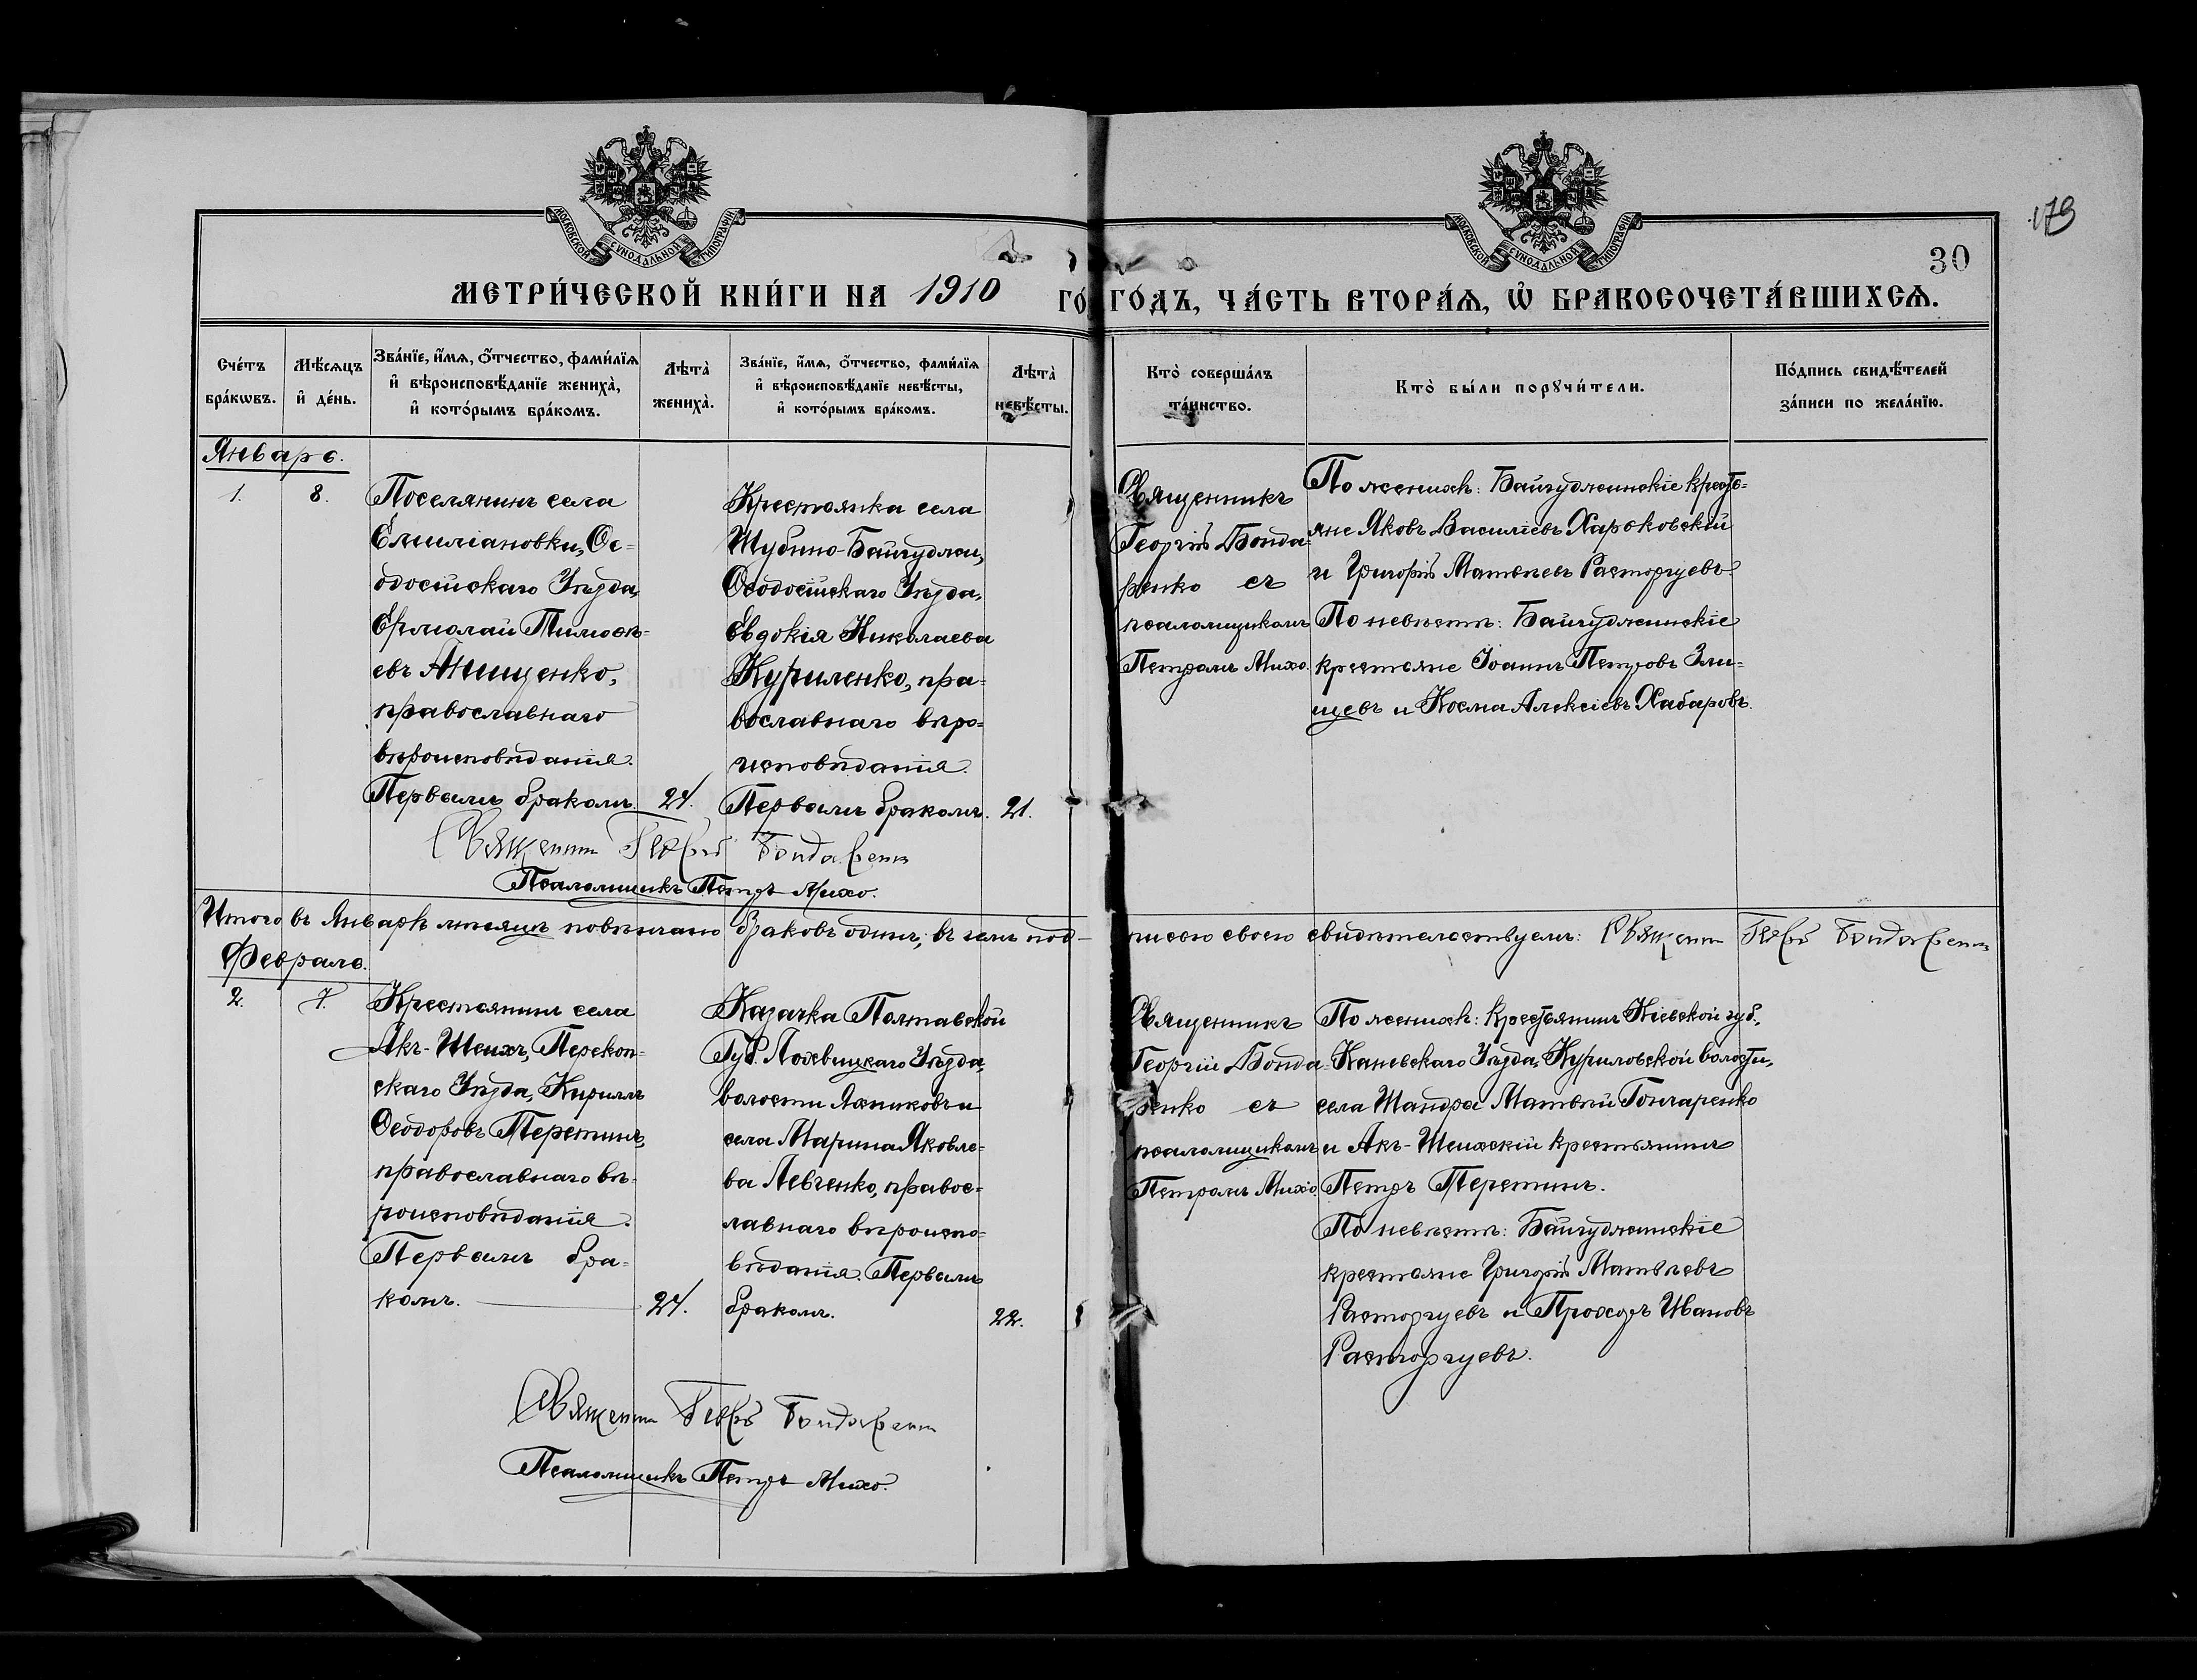 179
30
МОСКОВСКОЙ СѴНОДАЛЬНОЙ ТИПОГРАФІИ
МОСКОВСКОЙ СѴНОДАЛЬНОЙ ТИПОГРАФІИ
МЕТРИ́ЧЕСКОЙ КНИ́ГИ НА 1910 ГО́
ГО́ДЪ, ЧА́СТЬ ВТОРА́Ѧ, Ѽ БРАКОСОЧЕТА́ВШИХСѦ.
Сче́тъ
бра́кѡвъ.
Мѣ́сѧцъ
и҆ де́нь.
Зва́нїе, и҆́мѧ, ѻ҆́тчество, фами́лїѧ
и҆ вѣроисповѣ́данїе жениха̀,
и҆ кото́рымъ бра́комъ.
Лѣта̀
жениха̀.
Зва́нїе, и҆́мѧ, ѻ҆́тчество, фами́лїѧ
и҆ вѣроисповѣ́данїе невѣ́сты,
и҆ кото́рымъ бра́комъ.
Лѣта̀
невѣ́сты.
Кто̀ соверша́лъ
та́инство.
Кто̀ бы́ли порꙋчи́тели.
По́дпись свидѣ́телей
за́писи по жела́нїю.
Январь.
1.
8.
Поселянинъ села
Емиліановки, Ѳе-
одосійскаго Уѣзда,
Ермолай Тимоѳѣ-
евъ Анищенко,
православнаго
вѣроисповѣданія.
Первымъ бракомъ.
24.
Крестьянка села
Шубино-Байгуджи,
Ѳеодосійскаго Уѣзда,
Евдокія Николаева
Куриленко, пра-
вославнаго вѣро-
исповѣданія.
Первымъ бракомъ.
21.
Священникъ
Георгій Бонда-
ренко съ
псаломщикомъ
Петромъ Михо.
По женихѣ: Байгуджинскіе кресть-
яне Яковъ Василіевъ Харьковскій
и Григорій Матвѣевъ Расторгуевъ.
По невѣстѣ: Байгуджинскіе
крестьяне Іоаннъ Петровъ Зли-
щевъ и Косма Алексіевъ Хабаровъ.
Священник Георгій Бондаренко
Псаломщикъ Петръ Михо.
Итого въ Январѣ мѣсяцѣ повѣнчано браковъ одинъ; въ чемъ под-
писью своею свидѣтельствуемъ: Священник Георгій Бондаренко
Февраль.
2.
7.
Крестьянинъ села
Акъ-Шеихъ, Перекоп-
скаго Уѣзда, Кириллъ
Ѳеодоровъ Перетинъ,
православнаго вѣ-
роисповѣданія.
Первымъ бра-
комъ.
24.
Казачка Полтавской
Губ. Лохвицкаго Уѣзда,
волости Яхниковъ и
села Марина Яковле-
ва Левченко, правос-
лавнаго вѣроиспо-
вѣданія. Первымъ
бракомъ.
22.
Священникъ
Георгій Бонда-
ренко съ
псаломщикомъ
Петромъ Михо.
По женихѣ: Крестьянинъ Кіевской губ.,
Каневскаго Уѣзда, Куриловской волости,
села Шандра Матвѣй Гончаренко
и Акъ-Шеихскій крестьянинъ
Петръ Перетинъ.
По невѣстѣ: Байгуджинскіе
крестьяне Григорій Матвѣевъ
Расторгуевъ и Прохоръ Ивановъ
Расторгуевъ.
Священник Георгій Бондаренко
Псаломщикъ Петръ Михо.